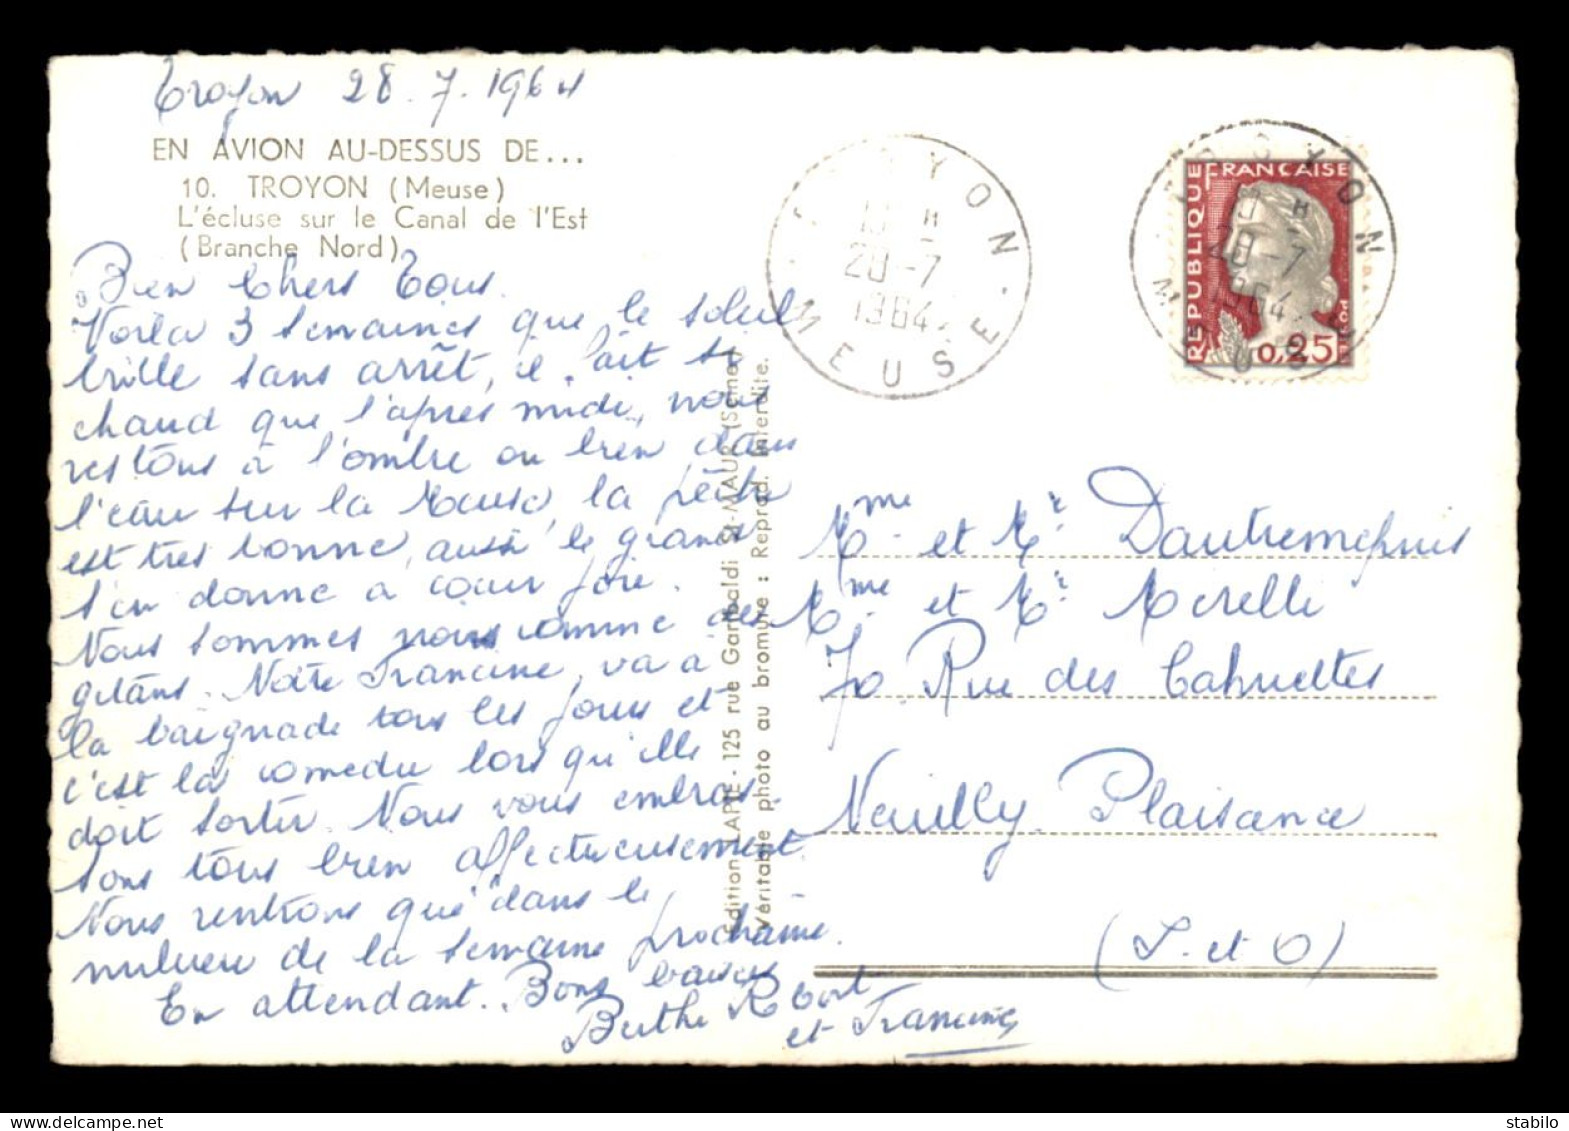 Troyon 28.7.1964
EN AVION AU-DESSUS DE...
10. TROYON (Meuse)
L'écluse sur le Canal de l'Est
(Branche Nord)
Bien Chers Tous.
Voilà 3 semaines que le soleil
brille sans arrêt, il fait si
chaud que l'après midi, nous
restons à l'ombre ou bien dans
l'eau sur la Meuse, la pêche
est très bonne, aussi le grand
s'en donne à coeur joie.
Nous sommes noirs comme des
gitans. Notre Francine, va à
la baignade tous les jours et
c'est la comédie lors qu'elle
doit sortir. Nous vous embras-
sons tous bien affectueusement.
Nous rentrons que dans le
milieu de la semaine prochaine.
En attendant. Bons baisers
Berthe Robert
et Francine
Edition LAPIE - 125 rue Garibaldi St-MAUR (Seine)
Véritable photo au bromure : Reprod. Interdite.
TROYON
28-7
1964
MEUSE
TROYON
28-7
1964
MEUSE
REPUBLIQUE FRANÇAISE
0,25
Mme et Mr Dautremepuis
Mme et Mr Merelli
70 Rue des Cahuettes
Neuilly Plaisance
(S. et O)
stabilo